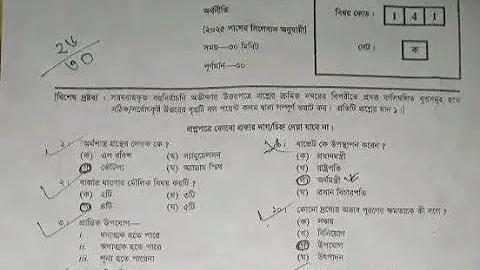 অর্থনীতি
[২০২৫ সালের সিলেবাস অনুযায়ী]
সময়—৩০ মিনিট
পূর্ণমান—৩০
বিষয় কোড : 1 4 1
সেট : ক
২৮/৩০
[বিশেষ দ্রষ্টব্য : সরবরাহকৃত বহুনির্বাচনি অভীক্ষার উত্তরপত্রে প্রশ্নের ক্রমিক নম্বরের বিপরীতে প্রদত্ত বর্ণসম্বলিত বৃত্তসমূহ হতে
সঠিক/সর্বোৎকৃষ্ট উত্তরের বৃত্তটি বল পয়েন্ট কলম দ্বারা সম্পূর্ণ ভরাট কর। প্রতিটি প্রশ্নের মান ১।]
প্রশ্নপত্রে কোনো প্রকার দাগ/চিহ্ন দেয়া যাবে না।
১। 'অর্থশাস্ত্র' গ্রন্থের লেখক কে ?
(ক) এল রবিন্স (খ) স্যামুয়েলসন
কৌটিল্য (ঘ) অ্যাডাম স্মিথ
২। বাজার ধারণার মৌলিক বিষয় কয়টি ?
(ক) ২টি (খ) ৩টি
৪টি (ঘ) ৫টি
৩। প্রান্তিক উপযোগ—
i. ধনাত্মক হতে পারে
ii. ঋণাত্মক হতে পারে
iii. শূন্য হতে পারেনা
বাজেট কে উপস্থাপন করেন ?
(ক) প্রধানমন্ত্রী
(খ) রাষ্ট্রপতি
অর্থমন্ত্রী
(ঘ) প্রধান বিচারপতি
১০। কোনো দ্রব্যের অভাব পূরণের ক্ষমতাকে কী বলে ?
(ক) সঞ্চয়
(খ) বিনিয়োগ
উপযোগ
(ঘ) উৎপাদন